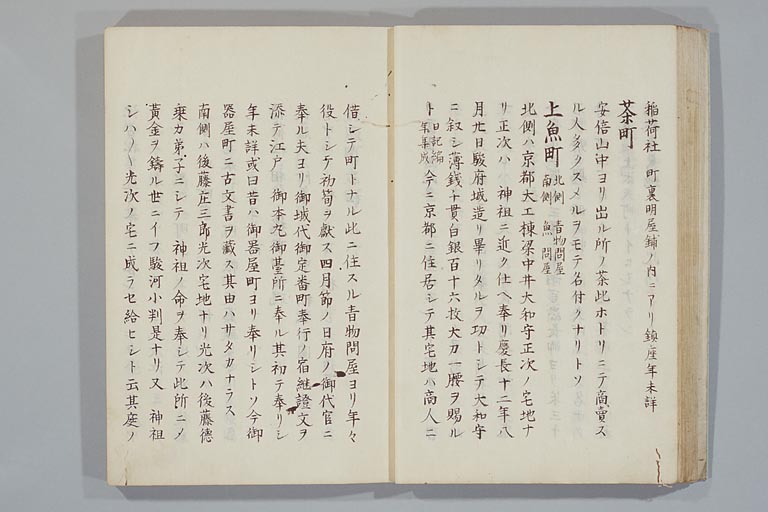 稲荷社 町裏明屋鋪ノ内ニアリ鎮座年未詳
茶町
安倍山中ヨリ出ル所ノ茶此ホトリニテ商賣ス
ル人多クスメルヲモテ名付クナリトソ
上魚町 北側 青物問屋 南側 魚問屋
北側ハ京都大工棟梁中井大和守正次ノ宅地ナ
リ正次ハ 神祖ニ近ク仕ヘ奉リ慶長十二年八
月廿日駿府城造リ畢リタルヲ功トシテ大和守
ニ叙シ薄銭十貫白銀百十六枚大刀一腰ヲ賜ル
ト 日記編年集成 今ニ京都ニ住居シテ其宅地ハ商人ニ
借シテ町トナル此ニ住スル青物問屋ヨリ年々
役トシテ初筍ヲ獻ス四月節ノ日府ノ御代官ニ
奉ル夫ヨリ御城代御定番町奉行ノ宿継證文ヲ
添テ江戸 御本丸御臺所ニ奉ル其初テ奉リシ
年未詳或曰昔ハ御器屋町ヨリ奉リシトソ今御
器屋町ニ古文書ヲ藏ス其由ハサタカナラス
南側ハ後藤庄三郎光次宅地ナリ光次ハ後藤德
乗カ弟子ニシテ 神祖ノ命ヲ奉シテ此所ニメ
黃金ヲ鑄ル世ニイフ駿河小判是ナリ又 神祖
シハ〱光次ノ宅ニ成ラセ給ヒシト云其庭ノ